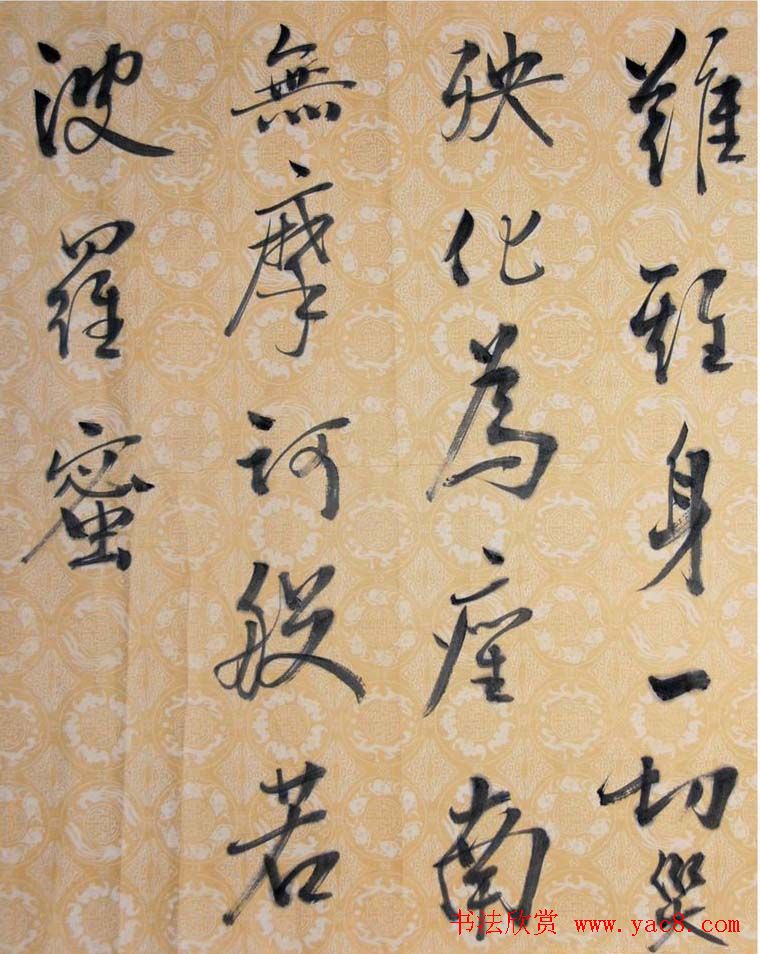 難難身一切災
殃化為塵南
無摩訶般若
波羅蜜
书法欣赏 www.yac8.com